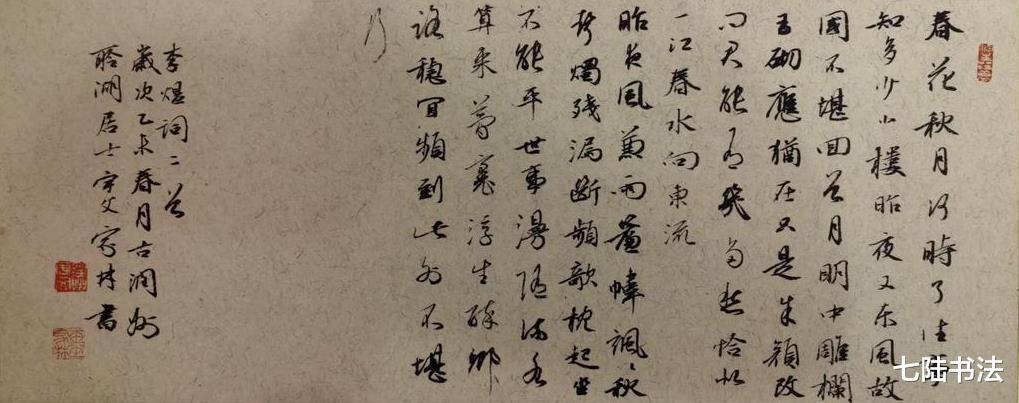 春花秋月何時了往事
知多少小樓昨夜又东風故
國不堪回首月明中雕欄
玉砌應猶在只是朱顔改
问君能有幾多愁恰似
一江春水向東流
昨夜風兼雨簾幃颯颯秋
聲燭残漏斷頻欹枕起坐
不能平世事漫随流水
算来夢裏浮生醉鄉
路穩宜頻到此外不堪
行
李煜词二首
歲次乙未春月古潤州
湖居士宇文家林書
七陆书法